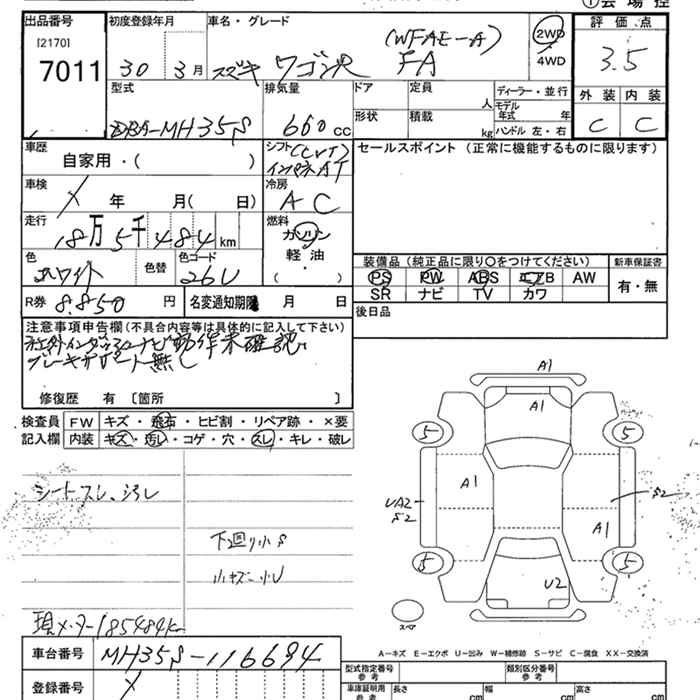 ①会場控
出品番号 初度登録年月 車名・グレード 評価点
[2170]
7011
30 3月 スズキ ワゴンR (WFAE-A) FA
2WD
4WD
3.5
型式 排気量 ドア 定員 人 ディーラー・並行
モデル年式 年
外装 内装
DBA-MH35S 660cc
形状 積載 kg ハンドル 左・右
C C
車歴 シフト (CVT) セールスポイント (正常に機能するものに限ります)
自家用・( ) インパネAT
車検 年 月( 日) 冷房
AC
走行 燃料
18万5千484km ガソリン
軽油
( )
色 色替 色コード
ホワイト 26U
装備品 (純正品に限り○をつけてください) 新車保証書
PS PW ABS エアB AW 有・無
SR ナビ TV カワ
R券 8.850円 名変通知期限 月 日 後日品
注意事項申告欄(不具合内容等は具体的に記入して下さい)
ナビ動作未確認
ブレーキサポート無し
修復歴 有 〔箇所 〕
検査員 FW キズ・飛石・ヒビ割・リペア跡・×要
記入欄 内装 キズ・汚レ・コゲ・穴・スレ・キレ・破レ
シートスレ、汚レ
下廻り小S
小キズ・小U
現メーター185484km
A1
A1
5 5
A1
UA2
S2
S2
A1
5 5
U2
スペア
A-キズ E-エクボ U-凹み W-補修跡 S-サビ C-腐食 XX-交換済
車台番号 MH35S-116694
型式指定番号 参考 類別区分番号 参考
登録番号
車庫証明用 参考 長さ cm 幅 cm 高さ cm